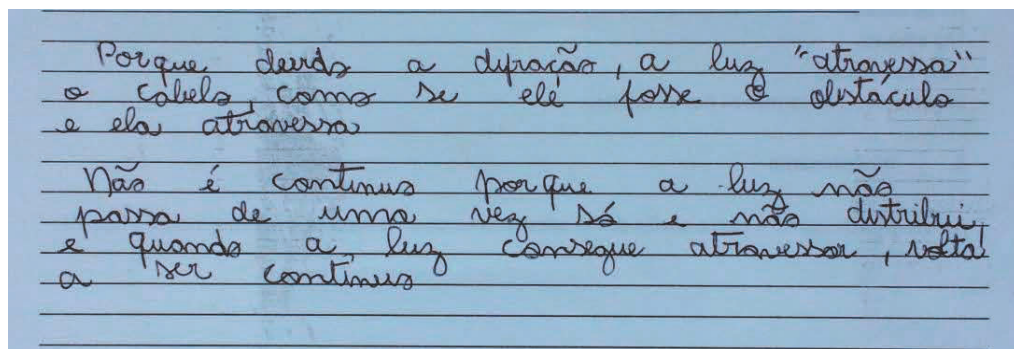 Porque devido a difração, a luz "atravessa"
o cabelo, como se ele fosse o obstáculo
e ela atravessa
Não é continuo porque a luz não
passa de uma vez só e não distribui,
e quando a luz consegue atravessar, volta
a ser contínuo